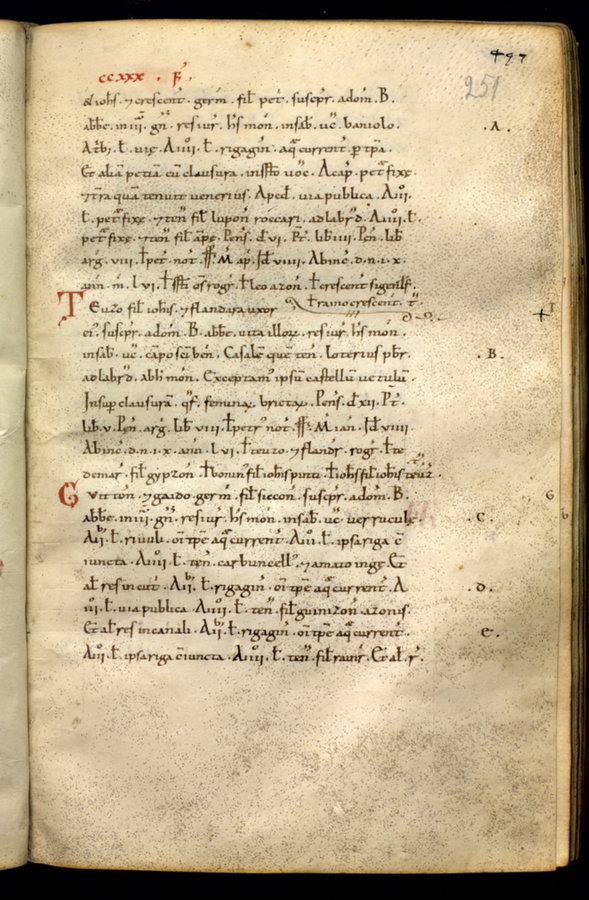 497
251
ccxxx . F.
& iohs . 7 crescent . germ . fil pet . suscpr . adom . B.
abbe . in iii . gn . res iur . hs mon . insab . uc . baniolo . .A.
A tbi . l . uie . A iiii . l . rigagin . aq current . p tpra .
Et alia petia cu clausura . insto uoc . A cap . pet fixe
7 tra qua tenuit uenerius . A ped . uia publica . A iii .
l . pet fixe . 7 ten fil lupon roccari . ad labrd . A iiii . l .
pet fixe . 7 ten fil ape . Pens . d vi . Pt . lib iiii . Pen . lib
arg . viii . pet . not . M ap . Id viiii . Ab inc . d . n . i . x .
ann . m . l . vi . rogr . leo azon . crescent
T euzo fil iohis . 7 flandara uxor rainocrescent . t
ei . suscpr . adom . B . abbe . utta illor . res iur . hs mon .
insab . uc . campo sci ben . Casale que ten . loterius pbr . .B.
ad labrd . abh mon . Exceptam ipsu castellu uetulu .
Insup clausura . qf . femina . bricta . Pens . d xii . Pt .
lib . v . Pen . arg . lib viii . petr not . M ian . Id viiii
Ab inc . d . n . i . x . ann . l . vi . teuzo . 7 flandr . rogr . te
demar . fil gypzon . bonin fil iohis pinti . iohs fil iohis teuz .
G uitton . 7 gaido germ . fil siccon . suscpr . adom . B . G
abbe . in iii . gn . res iur . hs mon . insab . uc . uerrucule .C. b
A ii . l . riuuli . oi tpe aq current . A iii . l . ipsa riga c
iuncta . A iiii . l . ten . carbuncell . 7 amato inge . Et
al res in cut . A ii . l . rigagin . oi tpe aq current . A .d.
iii . l . uia publica . A iiii . l . ten . fil guinizon azonis .
Et al res in canali . A ii . l . rigagin . oi tpe aq current . .e.
A iii . l . ipsa riga c iuncta . A iiii . l . ten . fil rauir . Et al . r .